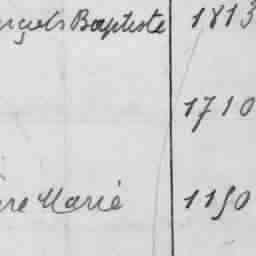 ançois Baptiste 1813
1710
ère Marie 1150